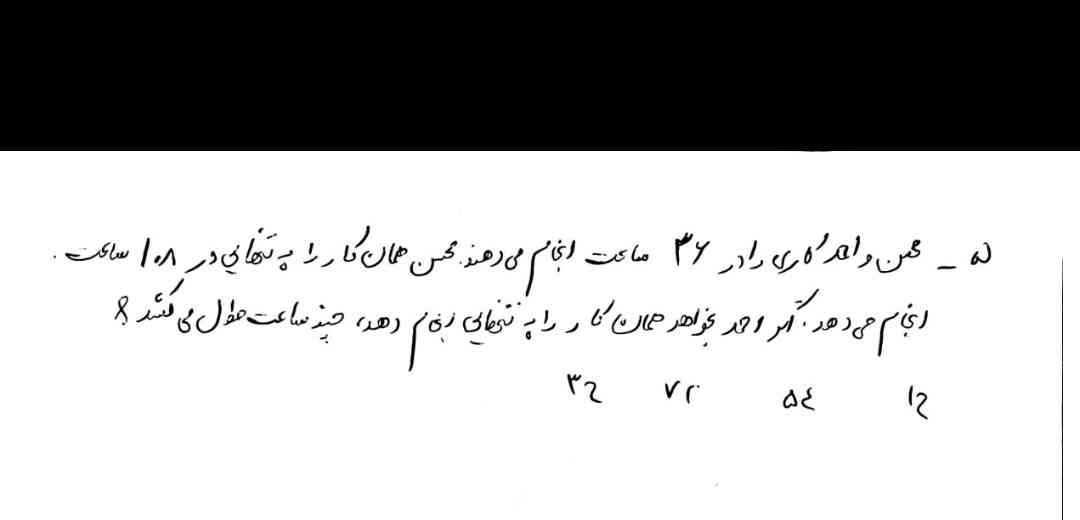 ۵ _ محسن و احمد کاری را در ۳۶ ساعت انجام می دهند. محسن همان کار را به تنهایی در ۱۰۸ ساعت .
انجام می دهد. اگر احمد بخواهد همان کار را به تنهایی انجام دهد، چند ساعت طول می کشد ؟
۵۴ ۷۲